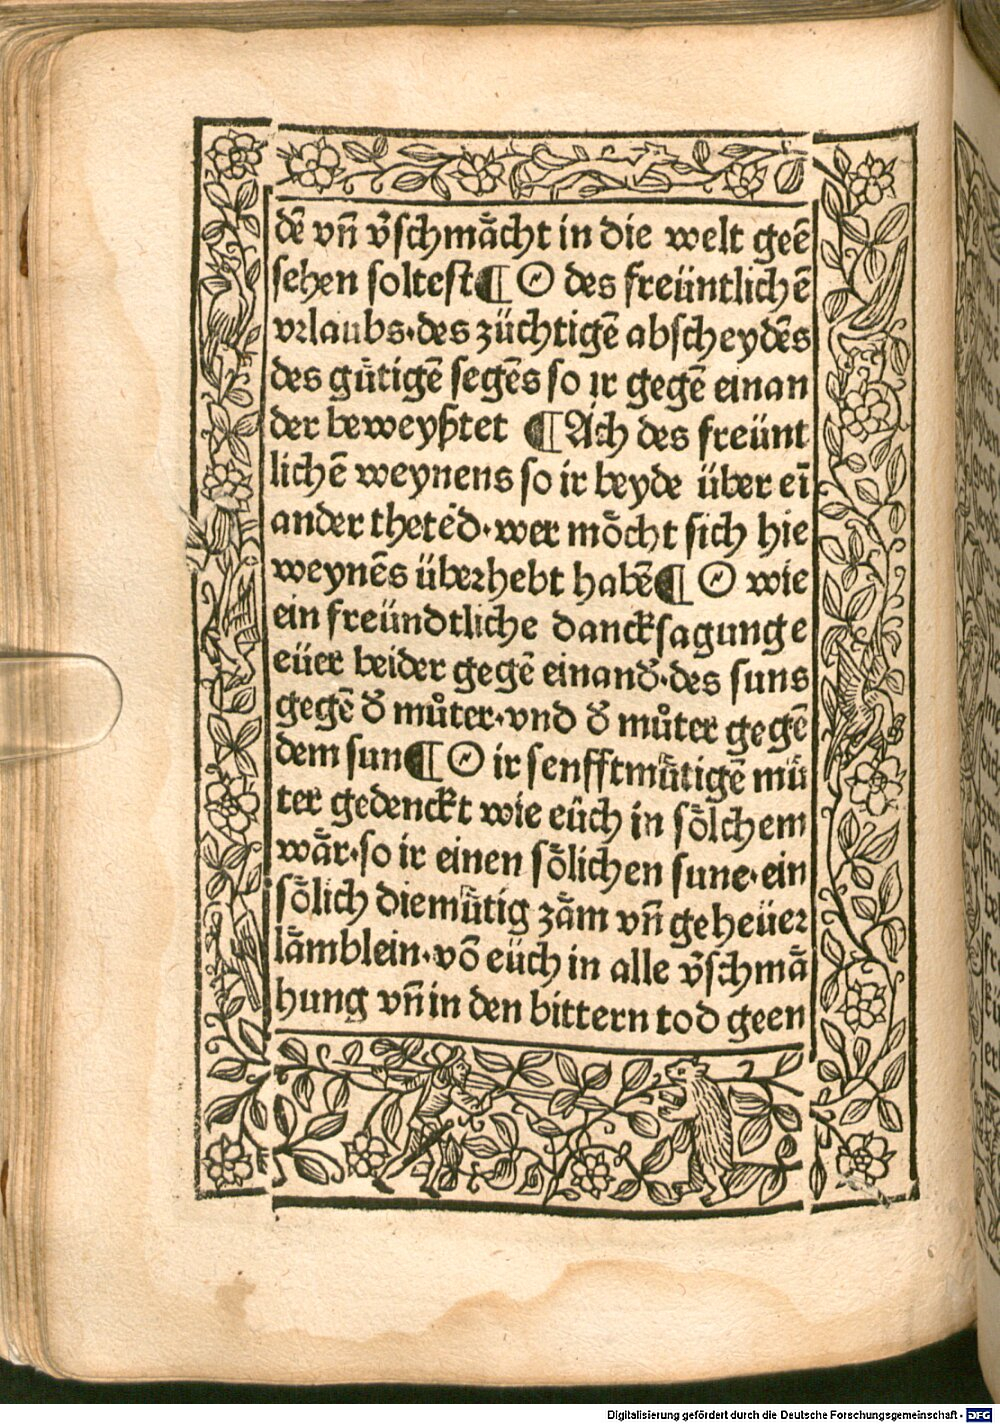 dē vn̄ v̄schmåcht in die welt geē
sehen soltest ¶ O des freüntlichē
vrlaubs·des züchtigē abscheydēs
des gůtigē segēs so ir gegē einan
der beweyßtet ¶ Ach des freünt
lichē weynens so ir beyde über eī
ander thetēd·wer mȫcht sich hie
weynēs überhebt habē ¶ O wie
ein freündtliche dancksagunge
eüer beider gegē einand̄·des suns
gegē d̄ můter·vnd d̄ můter gegē
dem sun ¶ O ir senfftmůtigē mů
ter gedenckt wie eüch in sȫlchem
wår·so ir einen sȫlichen sune·ein
sȫlich diemůtig zåm vn̄ geheüer
låmblein·vō eüch in alle v̄schmå
hung vn̄ in den bittern tod geen
Digitalisierung gefördert durch die Deutsche Forschungsgemeinschaft - DFG